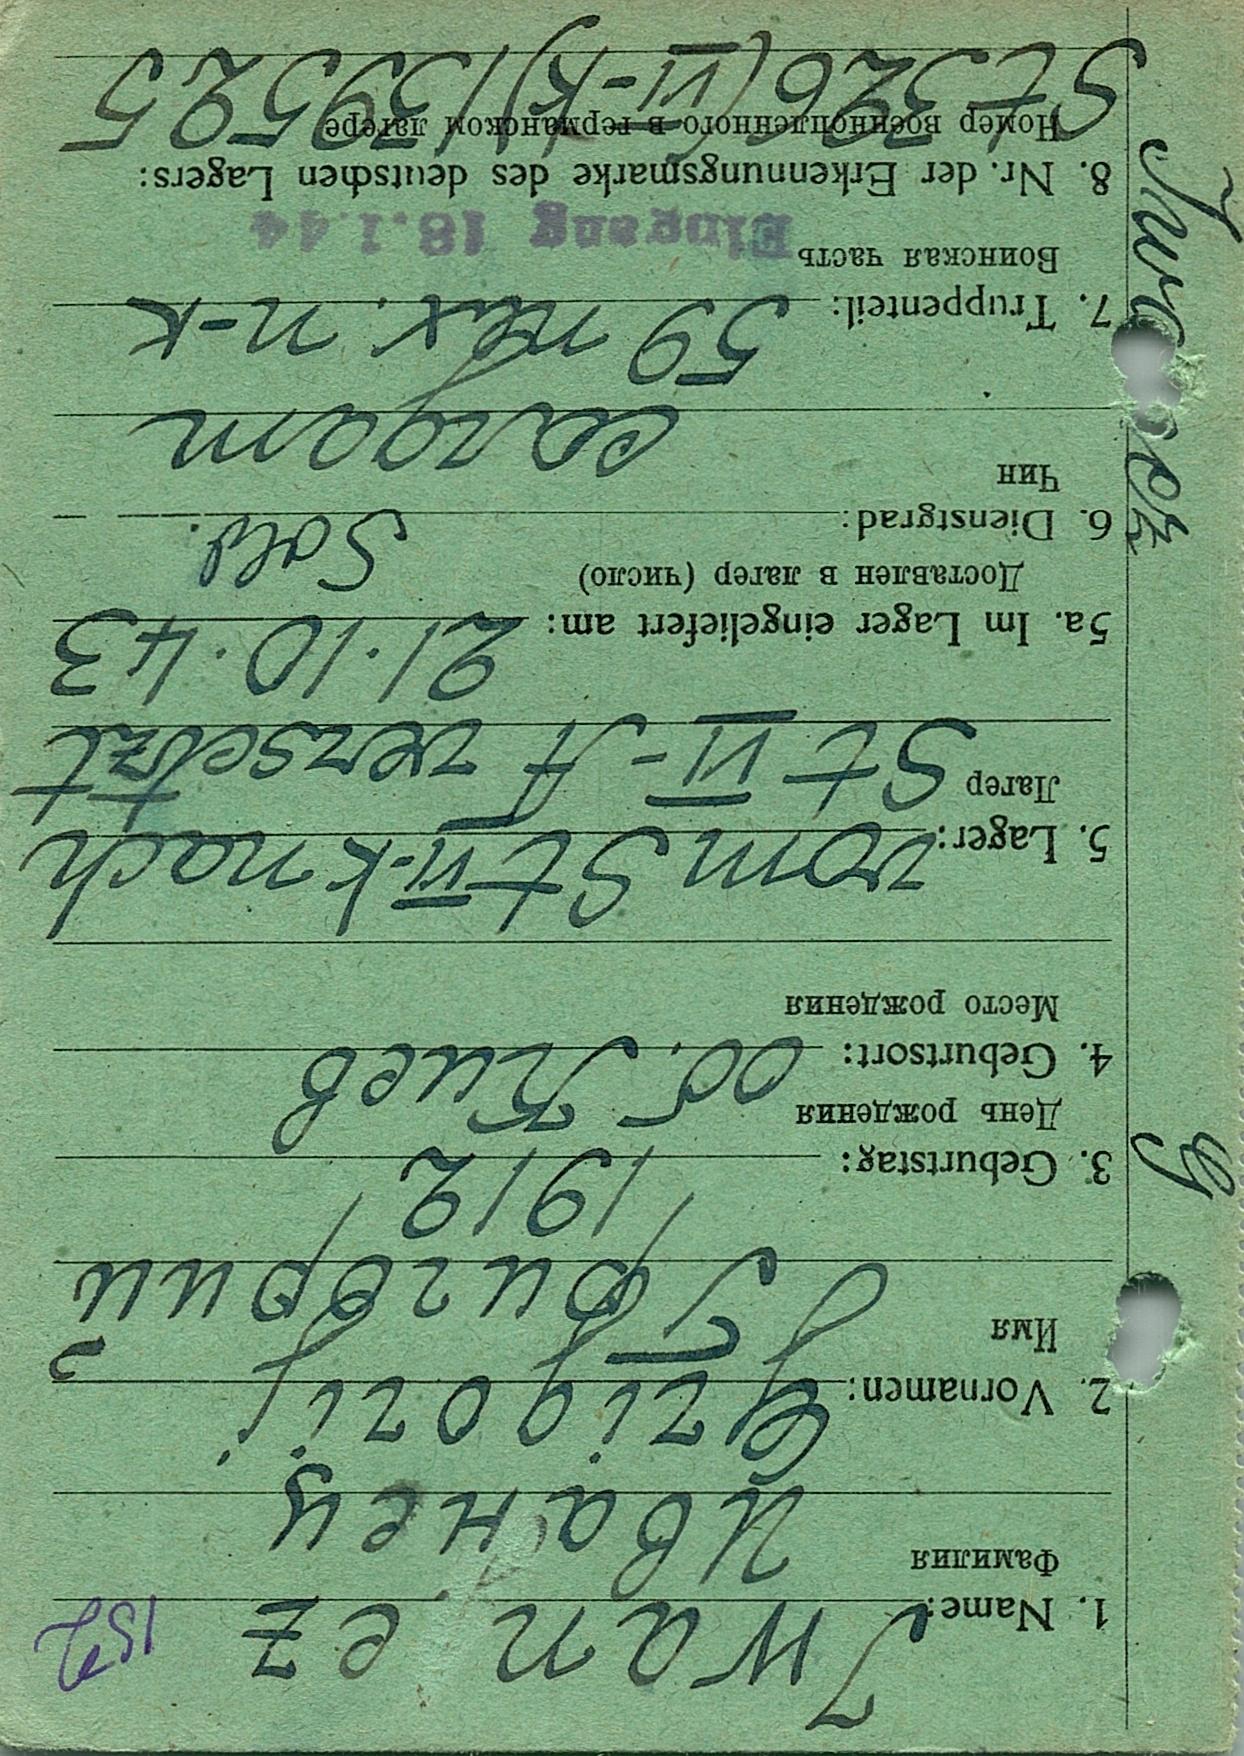 Iwanez G
152
1. Name: Iwanez
Фамилия Иванец
2. Vornamen: Grigorij
Имя Григорий
3. Geburtstag: 1912
День рождения
4. Geburtsort: об. Киев
Место рождения
5. Lager: vom St VI-K nach
Лагер St VI-A versetzt
5a. Im Lager eingeliefert am: 21.10.43
Доставлен в лагер (число)
6. Dienstgrad: Sold.
Чин солдат
7. Truppenteil: 59 п-к
Воинская часть
Eingang 18.1.44
8. Nr. der Erkennungsmarke des deutschen Lagers:
Номер военнопленного в германском лагере
St 326 (VI-K) 139525